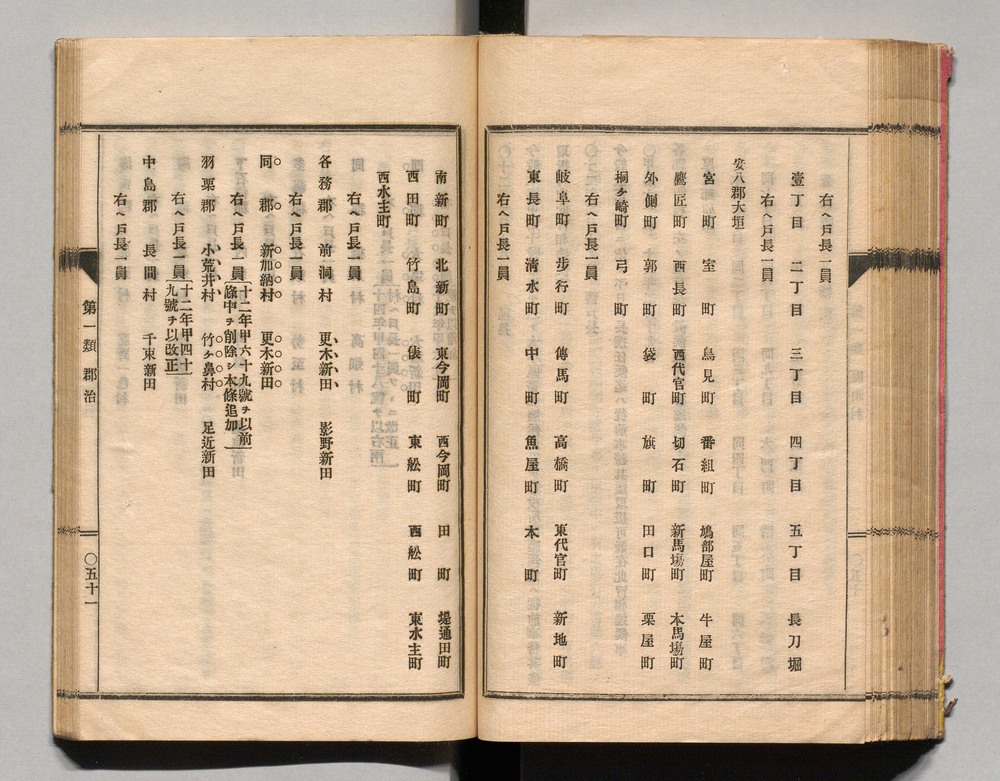 右ヘ戸長一員
壹丁目 二丁目 三丁目 四丁目 五丁目 長刀堀
右ヘ戸長一員
安八郡大垣
宮町 室町 鳥見町 番組町 鳩部屋町 牛屋町
鷹匠町 西長町 西代官町 切石町 新馬塲町 本馬塲町
外側町 郭町 袋町 旗町 田口町 栗屋町
桐ヶ崎町 弓町
右ヘ戸長一員
岐阜町 歩行町 傳馬町 高橋町 東代官町 新地町
東長町 清水町 中町 魚屋町 本町
南新町 北新町 東今岡町 西今岡町 田町 堤通田町
西田町 竹島町 俵町 東舩町 西舩町 東水主町
西水主町
右ヘ戸長一員
各務郡 前洞村 更木新田 影野新田
右ヘ戸長一員
同郡 新加納村 更木新田
右ヘ戸長一員 十二年甲六十九號ヲ以前條中ヲ削除シ本條追加
羽栗郡 小荒井村 竹ヶ鼻村 足近新田
右ヘ戸長一員 十二年甲四十九號ヲ以改正
中島郡 長間村 千束新田
右ヘ戸長一員
第一類 郡治
〇五十一